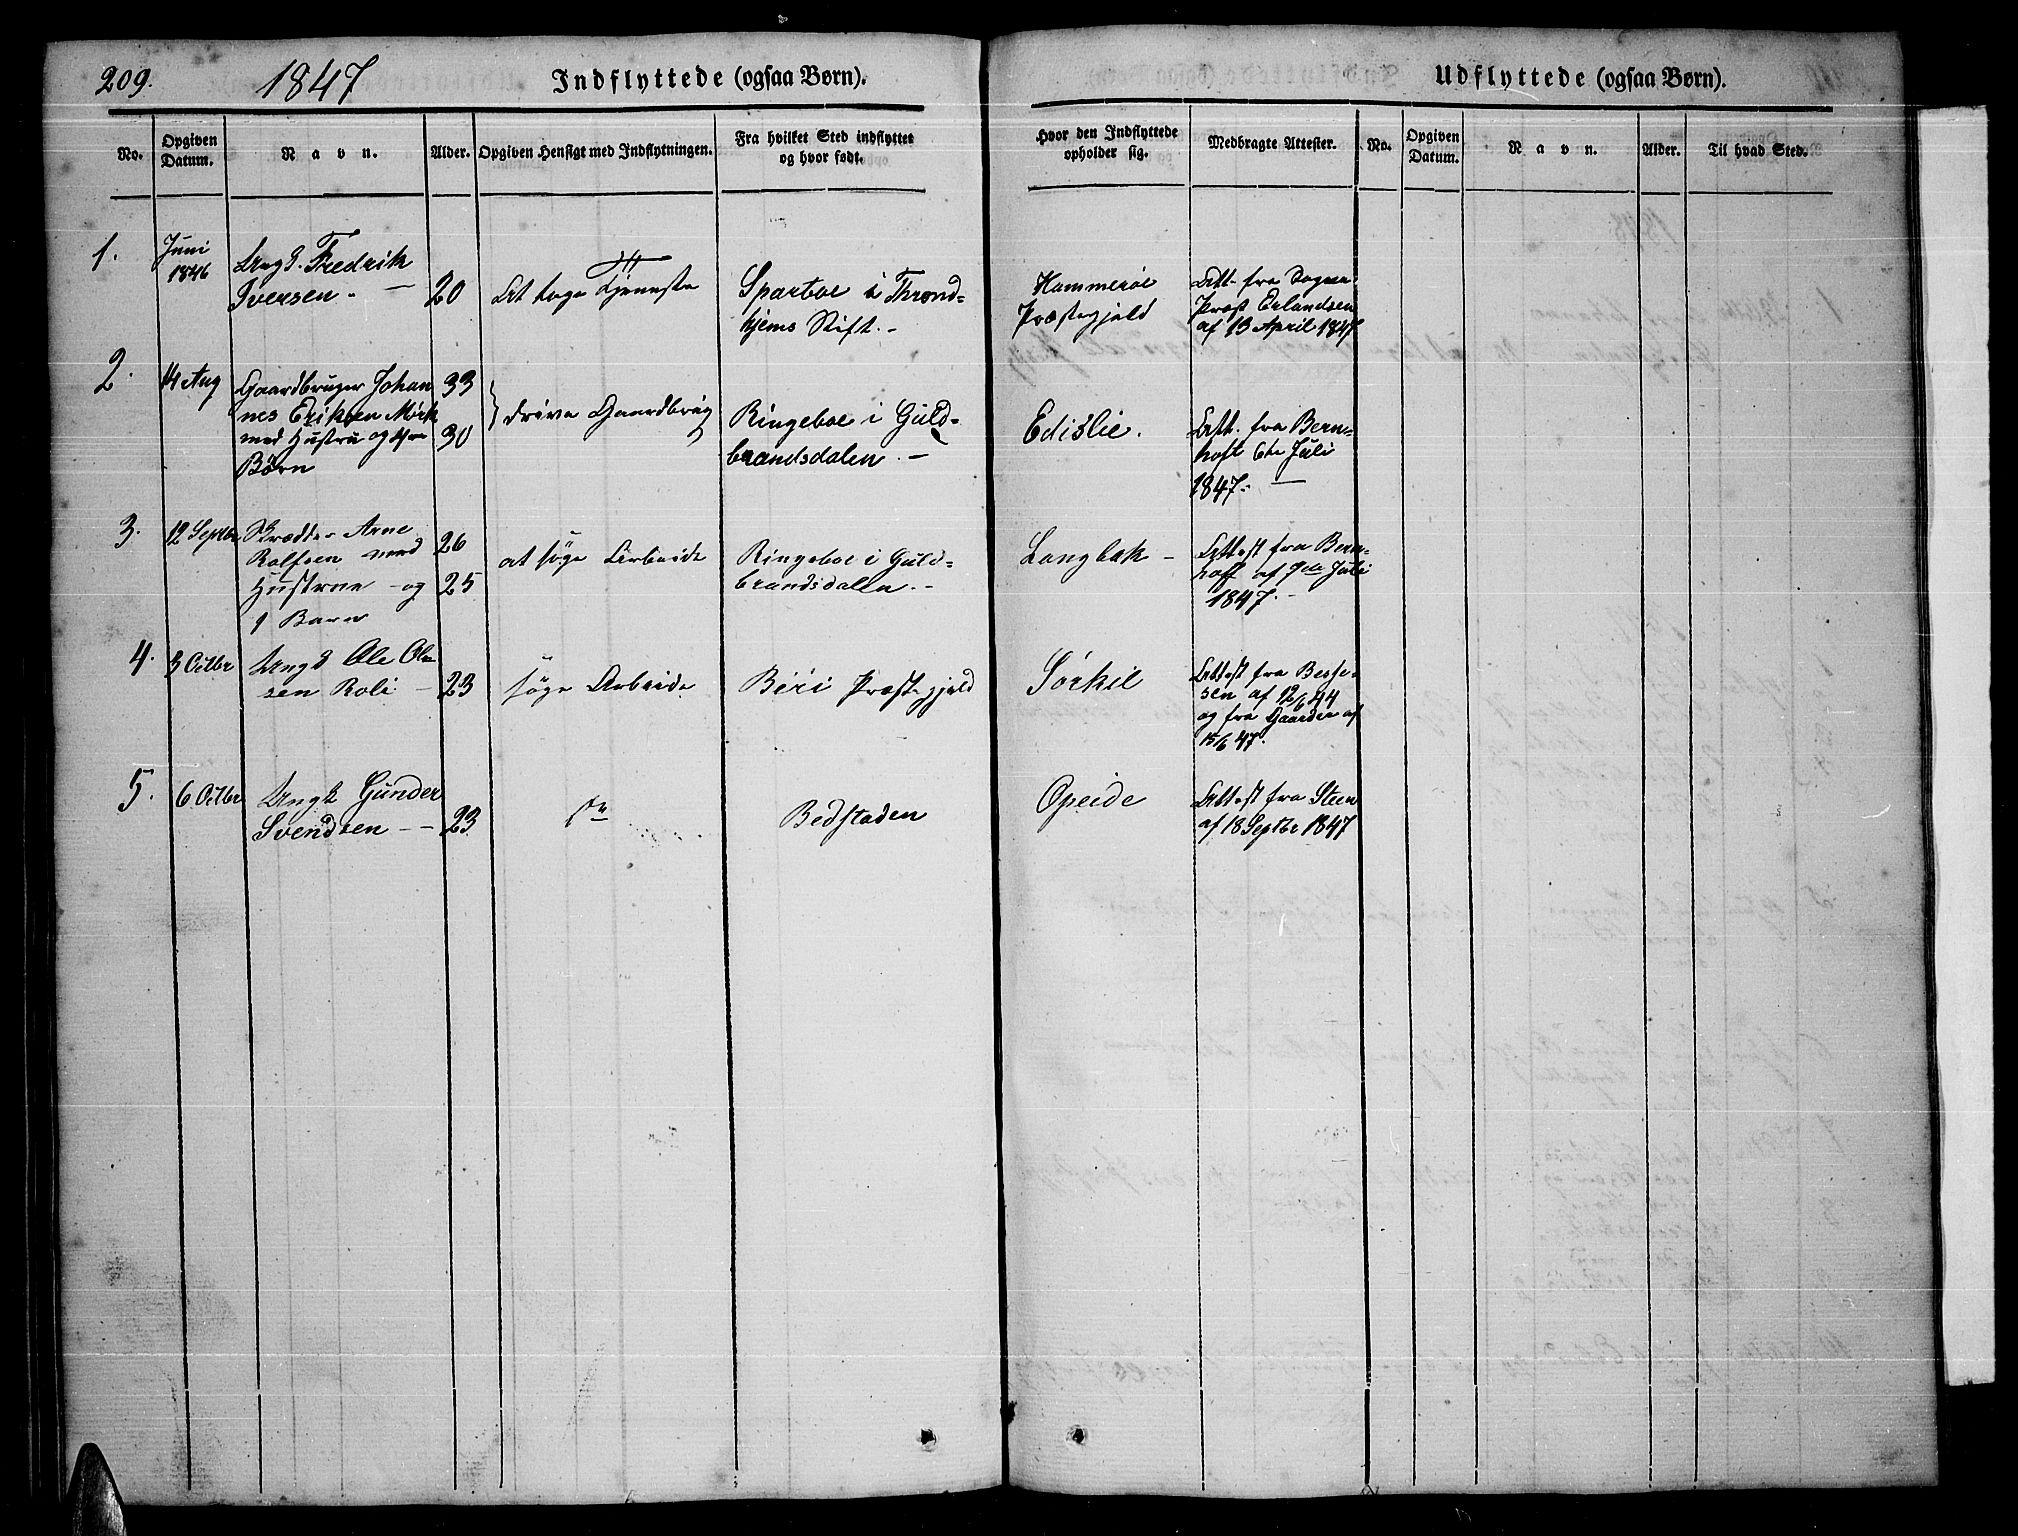 209.
1847
Indflyttede (ogsaa Børn).
Udflyttede (ogsaa Børn).
No.
Opgiven Datum.
Navn.
Alder.
Opgiven Hensigt med Indflytningen.
Fra hvilket Sted indflyttet og hvor født.
Hvor den Indflyttede opholder sig.
Medbragte Attester.
No.
Opgiven Datum.
Navn.
Alder.
Til hvad Sted.
1.
Juni
1846
Ungk. Fredrik
Iversen. —
20
At tage Tjeneste
Sparboe i Thrond-
hjems Stift. -
Hammerøe
Præstegjeld
Att. fra Sogne
Præst Erlandsen
af 13 April 1847
2.
14 Aug
Gaardbruger Johan
nes Eriksen Mörk
med Hustru og 4
Børn
33
30
drive Gaardbrug
Ringeboe i Guld-
brandsdalen. -
Edislie.
Att. fra Bern-
hoft 6te Juli
1847. —
3.
12 Septbr
Skrædder Arne
Rolfsen med
Hustrue - og
1 Barn
26
25
at söge Arbeide
Ringeboe i Guld-
brandsdalen. -
Langbak -
Attest fra Bern-
hoff af 7de Juli
1847. -
4.
3 Octbr
Ungk Ole Ol-
sen Roli —
23
söge Arbeide
Biri Præstegjeld
Sørkil
Attest fra Besse-
sen af 12/6 44
og fra Gaarder af
15/6 47.
5.
6 Octbr
Ungk Gunder
Svendsen —
23
Bedstaden
Opeide
Attest fra Steen
af 18 Septbr 1847